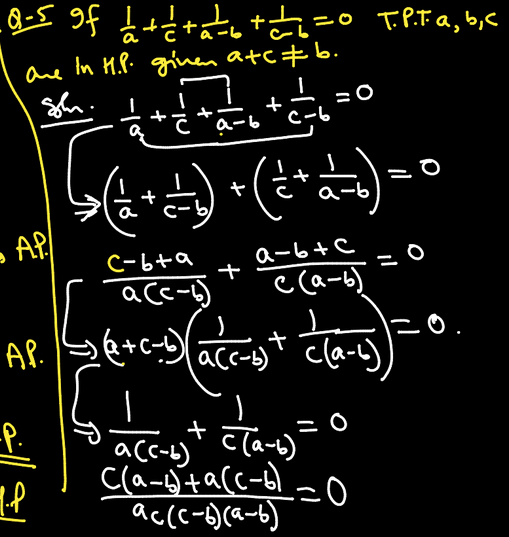 Q-5 If 1/a + 1/c + 1/(a-b) + 1/(c-b) = 0 T.P.T. a, b, c
are In H.P. given a+c ≠ b.
Soln. 1/a + 1/c + 1/(a-b) + 1/(c-b) = 0
(1/a + 1/(c-b)) + (1/c + 1/(a-b)) = 0
A.P.
(c-b+a)/(a(c-b)) + (a-b+c)/(c(a-b)) = 0
AP.
(a+c-b)(1/(a(c-b)) + 1/(c(a-b))) = 0.
P.
1/(a(c-b)) + 1/(c(a-b)) = 0
.P
(c(a-b)+a(c-b))/(ac(c-b)(a-b)) = 0